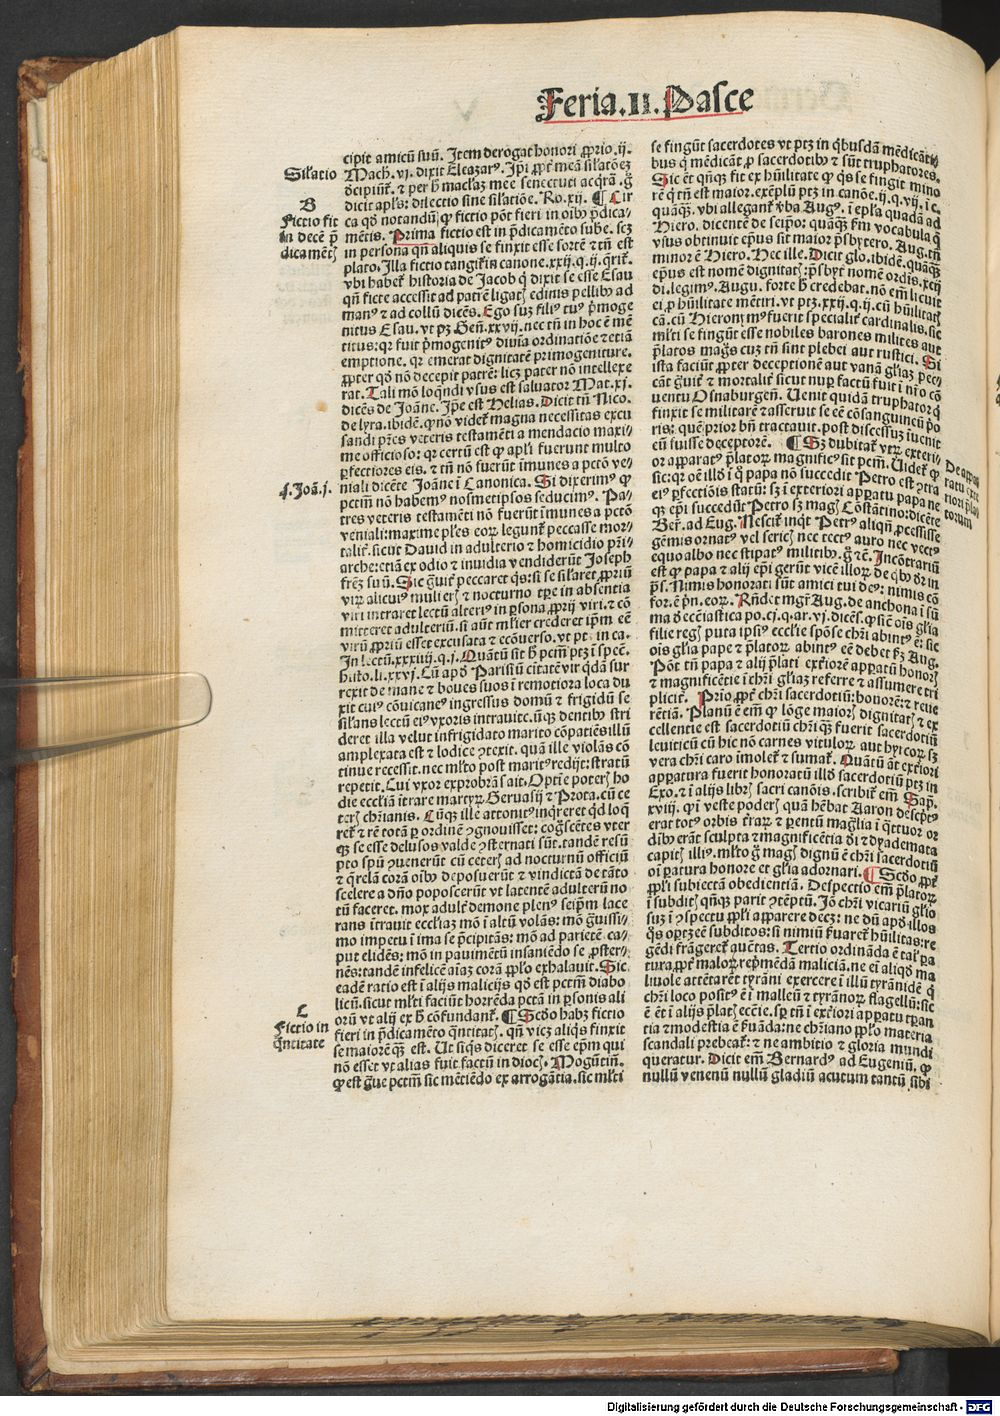 Feria.II. Pasce
cipit amicū suū. Item derogat honori ꝓprio.ij.
Mach̄.vj. dixit Eleazarꝰ. Ip̄i ꝓpt̄ meā sil̄atōeꝫ
dicit apl̄s: dilectio sine sil̄atiōe. Ro.xij. ¶ Cir
ca qd̄ notandū ꝙ fictio pōt fieri in oīb⁹ p̄dica-
mētis. Prima fictio est in p̄dicamēto sube. scꝫ
in persona qn̄ aliquis se finxit esse sortē ⁊ tn̄ est
plato. Illa fictio tangit̄ in canone.xxij.q.ij.
vbi habet̄ historia de Jacob q̄ dixit se esse Esau
qn̄ ficte accessit ad patrē ligat̄ edinis pellib⁹ ad
manꝰ ⁊ ad collū dicēs. Ego suꝫ filiꝰ tuꝰ p̄moge
nitus Esau. vt pꝫ Gen̄.xxvij. nec tn̄ in hoc ē mē
titus: qꝛ fuit p̄mogenitꝰ diuīa ordinatiōe ⁊ etiā
emptione. qꝛ emerat dignitatē primogeniture.
ꝓpter qd̄ nō decepit patrē: licꝫ pater nō intellexe
rat. Tali mō loq̄ndi vsus est saluator Mat.xj.
dicēs de Joāne. Ip̄e est Helias. Dicit tn̄ Nico.
de lyra. ibidē. ꝙ nō videt̄ magna necessitas excu
sandi p̄res veteris testamēti a mendacio maxi-
me officioso: qꝛ certū est ꝙ apl̄i fuerunt multo
ꝑfectiores eis. ⁊ tn̄ nō fuerūt īmunes a pctō ve-
niali dicēte Joāne ī Canonica. Si dixerimꝰ ꝙ
pctm̄ nō habemꝰ nosmetipsos seducimꝰ. Pa-
tres veteris testamēti nō fuerūt īmunes a pctō
veniali: maxime pl̄es eoꝝ legunt̄ peccasse mor-
talit̄. sicut Dauid in adulterio ⁊ homicidio p̄ri-
arche: etiā ex odio ⁊ inuidia vendiderūt Joseph
frēꝫ suū. Sic grauit̄ peccaret qs: si se sil̄aret ꝓpriū
virꝫ alicuiꝰ mulieris ⁊ nocturno tꝑe in absentia
viri intraret lectū alteriꝰ in ꝑsona ꝓprij viri. ⁊ cō
mitteret adulteriū. si aūt ml̄ier crederet ip̄m eē
virū ꝓpriū esset excusata ⁊ ecōuerso. vt pꝫ in ca.
In lectū.xxxiiij.q.j. Quātū sit h̄ pctm̄ ptꝫ ī spec̄.
histo.li.xxvj. Cū apd̄ Parisiū ciuitatē vir qdā sur
rexit de mane ⁊ boues suos ī remotiora loca du
xit cuiꝰ cōuicaneꝰ ingressus domū ⁊ frigidū se
sil̄ans lectū eiꝰ vxoris intrauit. cūqꝫ dentibꝰ stri
deret illa velut infrigidato marito cōpatiēs illū
amplexata est ⁊ lodice ꝯtexit. quā ille violās cō
tinue recessit. nec ml̄to post maritꝰ redijt: stratū
repetit. Cui vxor exprobrās ait. Optie poter̄ ho
die eccl̄iā ītrare martyꝝ Geruasij ⁊ Prota. cū ce
ter̄ chr̄ianis. Cūqꝫ ille attonitꝰ inq̄reret qd̄ loq̄
ret̄ ⁊ rē totā ꝑ ordinē ꝯgnouisset: cogscētes vter
qꝫ se esse delusos valde ꝯsternati sūt. tandē resū
pto spū ꝯuenerūt cū ceter̄ ad nocturnū officiū
⁊ q̄relā corā oīb⁹ deposuerūt ⁊ vindictā de tāto
scelere a dn̄o poposcerūt vt latentē adulterū no
tū faceret. mox adult̄ demone plenꝰ seip̄m lace
rans ītrauit eccl̄iaꝫ mō ī altū volās: mō grauissi-
mo impetu ī ima se p̄cipitās: mō ad parietē ca-
put elidēs: mō in pauimētū insaniēdo se ꝓster-
nēs: tandē infelicē aīaꝫ corā ppl̄o exhalauit. Sic
eadē ratio est ī alijs malicijs qd̄ est pctm̄ diabo
licū. sicut ml̄ti faciūt horrēda pctā in ꝑsonis ali
orū vt alij ex h̄ cōfundant̄. ¶ Scdo habꝫ fictio
fieri in p̄dicamēto q̄ntitat̄. qn̄ vicꝫ aliqs finxit
se maiorē qꝫ est. Ut siqs diceret se esse ep̄m qui
nō esset vt alias fuit factū in dioc̄. Mogūtin̄.
ꝙ est graue pctm̄ sic mētiēdo ex arrogātia. sic ml̄ti
Sil̄atio
B
Fictio fit
in decē p̄
dicamēt̄
.j.Joā.j.
C
Fictio in
q̄ntitate
se fingūt sacerdotes vt ptꝫ in q̄busdā mēdicātib
bus q̄ mēdicāt̄ ꝑ sacerdotib⁹ ⁊ sūt truphatores.
Sic ēt qn̄qꝫ fit ex hūilitate ꝙ qs se fingit mino
rē q̄ tn̄ est maior. exēplū ptꝫ in canōe.ij.q.vij. ī c.
quāqꝫ. vbi allegant̄ v̄ba Augꝰ. ī ep̄la quadā ad
Hiero. dicentē de seip̄o: quāqꝫ fm̄ vocabula q̄
vsus obtinuit ep̄us sit maior p̄sbytero. Aug. tn̄
minor ē Hiero. Hec ille. Dicit glo. ibidē. quāqꝫ
ep̄us est nomē dignitat̄: p̄sbyt̄ nomē ordīs. xcij
di. legimꝰ. Augu. forte h̄ credebat. nō em̄ licuit
ei ꝓ hūilitate mētiri. vt ptꝫ.xxij.q.ij. cū hūilitat̄
cā. cū Hieronymꝰ fuerit specialit̄ cardinalis. sic
ml̄ti se fingūt esse nobiles barones milites aut
p̄latos mag̃s cuꝫ tn̄ sint plebei aut rustici. Si
ista faciūt ꝓpter deceptionē aut vanā gl̄iaꝫ pec-
cāt grauit̄ ⁊ mortalit̄ sicut nuꝑ factū fuit ī nr̄o cō
uentu Osnaburgen̄. Uenit quidā truphator q̄
finxit se militarē ⁊ asseruit se eē cōsanguineū p̄o
ris: quē prior bn̄ tractauit. post discessuꝫ īuenit
eū fuisse deceptorē. ¶ Sꝫ dubitat̄ vtꝝ exteri-
or apparatꝰ p̄latoꝝ magnificꝰ sit pctm̄. Uidet̄ ꝙ
sic: qꝛ oē illd̄ ī q̄ papa nō succedit Petro est ꝯtra
eiꝰ ꝑfectiōis statū: sꝫ ī exteriori apꝑatu papa ne
qꝫ ep̄i succedūt Petro sꝫ mag̃ Cōstātino: dicēte
Ber̄. ad Eug. Nescit̄ inq̄t Petrꝰ aliqn̄ ꝓcessisse
gēmis ornatꝰ vel seric̄ nec tectꝰ auro nec vectꝰ
equo albo nec stipatꝰ militib⁹. gͦ ⁊c̄. Incōtrariū
est ꝙ papa ⁊ alij ep̄i gerūt vicē illoꝝ de qb⁹ dꝛ in
ps̄. Nimis honorati sūt amici tui deꝰ: nimis cō
for. ē p̄n. eoꝝ. Rn̄det mgr̄ Aug. de anchona ī sū
ma d̄ ecciastica po.cj.q.ar.vj. dicēs. ꝙ sic oīs gl̄ia
filie reg̃ puta ipsiꝰ eccl̄ie spōse chr̄i abintꝰ ē: sic
ois gl̄ia pape ⁊ p̄latoꝝ abintꝰ eē debet fꝫ Aug.
Pōt tn̄ papa ⁊ alij p̄lati ext̄iorē appatū honor̄
⁊ magnificētie ī chr̄i gl̄iaꝫ referre ⁊ assumere tri
plicit̄. Prīo ꝓpt̄ chr̄i sacerdotiū: honorē: ⁊ reue
rētiā. Planū ē em̄ ꝙ lōge maior̄ dignitat̄ ⁊ ex
cellentie est sacerdotiū chr̄i qꝫ fuerit sacerdotiū
leuiticū cū hic nō carnes vituloꝝ aut hyrcoꝝ sꝫ
vera chr̄i caro imolet̄ ⁊ sumat̄. Quātū āt ext̄iori
apꝑatura fuerit honoratū illd̄ sacerdotiū ptꝫ in
Exo. ⁊ ī alijs libr̄ sacri canōis. scribit̄ em̄ Sap̄.
xviij. qꝛ ī veste poder̄ quā hēbat Aaron descptꝰ
erat totꝰ orbis t̄raꝝ ⁊ parentū magl̄ia ī q̄ttuor or
dib⁹ erāt sculpta ⁊ magnificētia d̄i ⁊ dyademata
capit̄ illiꝰ. ml̄to gͦ mag̃ dignū ē chr̄i sacerdotiū
oi ꝑatura honore et gl̄ia adornari. ¶ Scdo ꝓpt̄
ppl̄i subiectā obedientiā. Despectio em̄ p̄latoꝝ
ī subdit̄ qn̄qꝫ parit ꝯtēptū. Iō chr̄i vicariū gl̄io
suꝫ ī ꝯspectu ppl̄i apparere decꝫ: ne dū apd̄ illos
q̄s oꝑtꝫ eē subditos: si nimiū f̄uaret̄ hūilitas: re
gēdi frāgeret̄ auctas. Tertio ordināda ē tal̄ ꝑa
tura ꝓpt̄ maloꝝ rep̄mēdā maliciā. ne ei aliqd̄ ma
liuole attētarēt tyrāni exercere ī illū tyrānidē q̄
chr̄i loco positꝰ ē ī malleū ⁊ tyrānoꝝ flagellū: sic
ē ēt ī alijs p̄lat̄ eccīe. sꝑ tn̄ ī ext̄iori apꝑatu tꝑan
tia ⁊ modestia ē f̄uāda: ne chr̄iano ppl̄o materia
scandali prebeat̄: ⁊ ne ambitio ⁊ gloria mundi
queratur. Dicit em̄ Bernardꝰ ad Eugeniū. ꝙ
nullū venenū nullū gladiū acutum tantū sibi
De appa
ratu exte
riori p̄la
torum
Digitalisierung gefördert durch die Deutsche Forschungsgemeinschaft - DFG